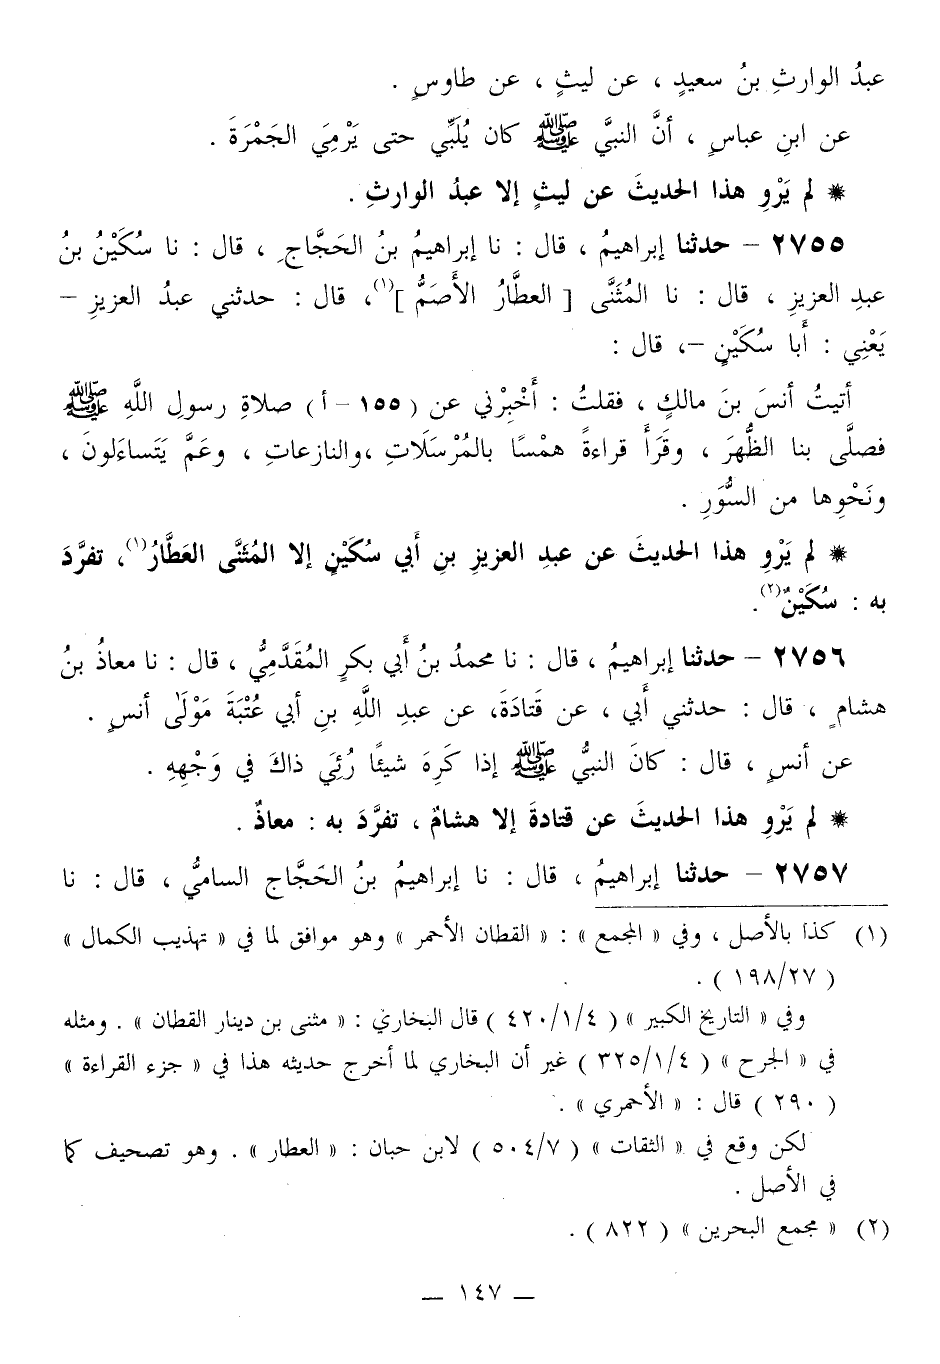 عبدُ الوارثِ بنُ سعيدٍ ، عن ليثٍ ، عن طاوسٍ .
عن ابنِ عباسٍ ، أنَّ النبيَّ ﷺ كان يُلَبِّي حتى يَرْمِيَ الجَمْرَةَ .
* لم يَرْوِ هذا الحديثَ عن ليثٍ إلا عبدُ الوارثِ .
٢٧٥٥ – حدثنا إبراهيمُ ، قال : نا إبراهيمُ بنُ الحَجَّاجِ ، قال : نا سُكَيْنُ بنُ
عبدِ العزيزِ ، قال : نا المُثَنَّى [ العطَّارُ الأَصَمُّ ](١)، قال : حدثني عبدُ العزيزِ –
يَعْنِي : أَبا سُكَيْنٍ –، قال :
أتيتُ أنسَ بنَ مالكٍ ، فقلتُ : أَخْبِرْني عن ( ١٥٥ – أ ) صلاةِ رسولِ اللَّهِ ﷺ
فصلَّى بنا الظُّهرَ ، وقَرَأَ قراءةً همْسًا بالمُرْسَلَاتِ ،والنازعاتِ ، وعَمَّ يَتَساءَلونَ ،
ونَحْوِها من السُّوَرِ .
* لم يَرْوِ هذا الحديثَ عن عبدِ العزيزِ بنِ أَبي سُكَيْنٍ إلا المُثَنَّى العَطَّارُ(١)، تفرَّدَ
به : سُكَيْنٌ(٢).
٢٧٥٦ – حدثنا إبراهيمُ ، قال : نا محمدُ بنُ أَبي بكرٍ المُقَدَّمِيُّ ، قال : نا معاذُ بنُ
هشامٍ ، قال : حدثني أَبي ، عن قَتادَةَ، عن عبدِ اللَّهِ بنِ أبي عُتْبَةَ مَوْلَى أنسٍ .
عن أنسٍ ، قال : كانَ النبيُّ ﷺ إذا كَرِهَ شيئًا رُئِيَ ذاكَ في وَجْهِهِ .
* لم يَرْوِ هذا الحديثَ عن قتادةَ إلا هشامٌ ، تفرَّدَ به : معاذٌ .
٢٧٥٧ – حدثنا إبراهيمُ ، قال : نا إبراهيمُ بنُ الحَجَّاجِ الساميُّ ، قال : نا
(١) كذا بالأصل ، وفي « المجمع » : « القطان الأحمر » وهو موافق لما في « تهذيب الكمال »
( ١٩٨/٢٧ ) .
وفي « التاريخ الكبير » ( ٤٢٠/١/٤ ) قال البخاري : « مثنى بن دينار القطان » . ومثله
في « الجرح » ( ٣٢٥/١/٤ ) غير أن البخاري لما أخرج حديثه هذا في « جزء القراءة »
( ٢٩٠ ) قال : « الأحمري » .
لكن وقع في « الثقات » ( ٥٠٤/٧ ) لابن حبان : « العطار » . وهو تصحيف كما
في الأصل .
(٢) « مجمع البحرين » ( ٨٢٢ ) .
– ١٤٧ –